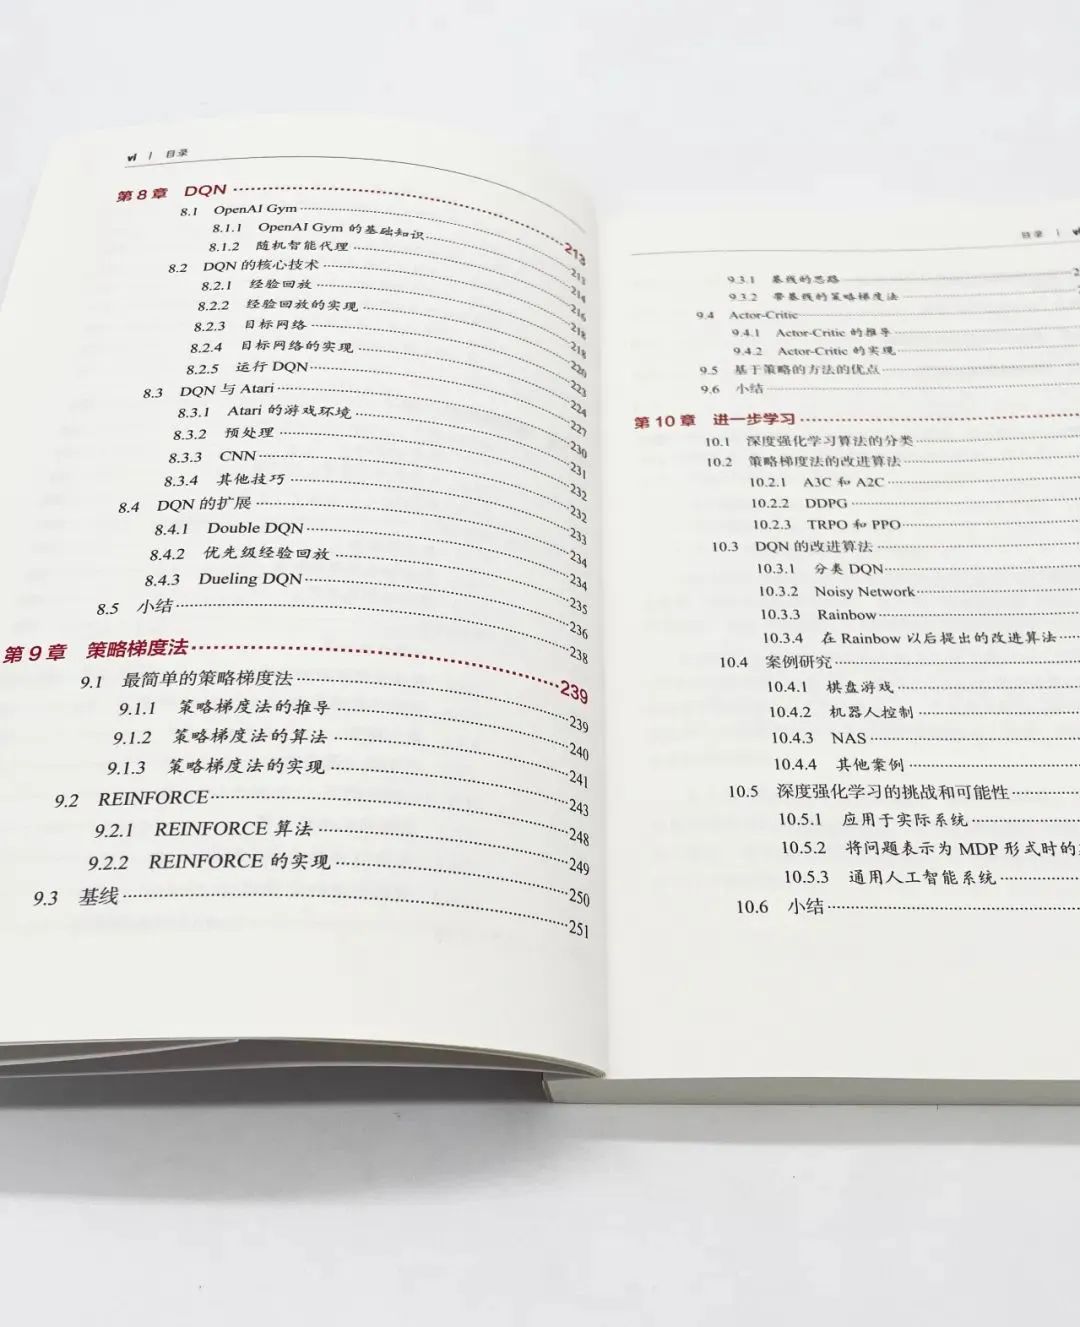 vi | 目录
第 8 章 DQN 213
8.1 OpenAI Gym 213
8.1.1 OpenAI Gym 的基础知识 214
8.1.2 随机智能代理 216
8.2 DQN 的核心技术 218
8.2.1 经验回放 218
8.2.2 经验回放的实现 220
8.2.3 目标网络 223
8.2.4 目标网络的实现 224
8.2.5 运行 DQN 227
8.3 DQN 与 Atari 230
8.3.1 Atari 的游戏环境 231
8.3.2 预处理 232
8.3.3 CNN 232
8.3.4 其他技巧 233
8.4 DQN 的扩展 234
8.4.1 Double DQN 234
8.4.2 优先级经验回放 235
8.4.3 Dueling DQN 236
8.5 小结 238
第 9 章 策略梯度法 239
9.1 最简单的策略梯度法 239
9.1.1 策略梯度法的推导 240
9.1.2 策略梯度法的算法 241
9.1.3 策略梯度法的实现 243
9.2 REINFORCE 248
9.2.1 REINFORCE 算法 249
9.2.2 REINFORCE 的实现 250
9.3 基线 251
目录 |
9.3.1 基线的思路
9.3.2 带基线的策略梯度法
9.4 Actor-Critic
9.4.1 Actor-Critic 的推导
9.4.2 Actor-Critic 的实现
9.5 基于策略的方法的优点
9.6 小结
第 10 章 进一步学习
10.1 深度强化学习算法的分类
10.2 策略梯度法的改进算法
10.2.1 A3C 和 A2C
10.2.2 DDPG
10.2.3 TRPO 和 PPO
10.3 DQN 的改进算法
10.3.1 分类 DQN
10.3.2 Noisy Network
10.3.3 Rainbow
10.3.4 在 Rainbow 以后提出的改进算法
10.4 案例研究
10.4.1 棋盘游戏
10.4.2 机器人控制
10.4.3 NAS
10.4.4 其他案例
10.5 深度强化学习的挑战和可能性
10.5.1 应用于实际系统
10.5.2 将问题表示为 MDP 形式时的
10.5.3 通用人工智能系统
10.6 小结